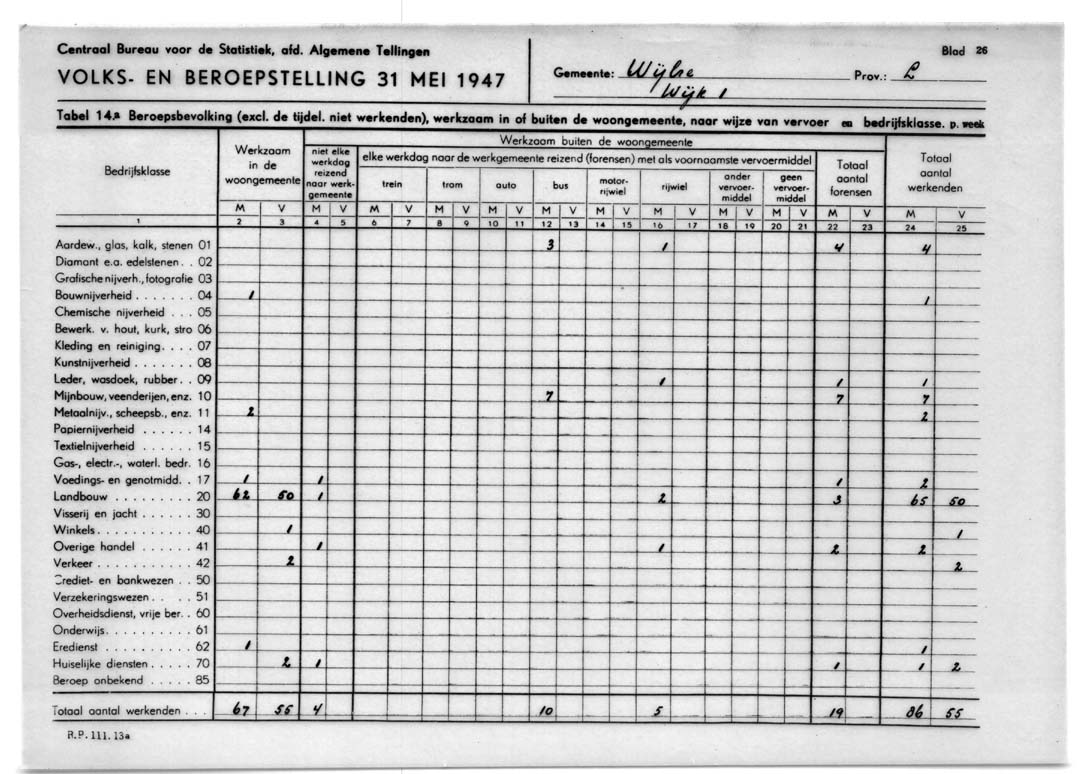 Centraal Bureau voor de Statistiek, afd. Algemene Tellingen
VOLKS- EN BEROEPSTELLING 31 MEI 1947
Gemeente: Wijlre
Wijk 1
Prov.: L
Blad 26
Tabel 14.a Beroepsbevolking (excl. de tijdel. niet werkenden), werkzaam in of buiten de woongemeente, naar wijze van vervoer en bedrijfsklasse. p. week
Bedrijfsklasse
Werkzaam in de woongemeente
Werkzaam buiten de woongemeente
niet elke werkdag reizend naar werkgemeente
elke werkdag naar de werkgemeente reizend (forensen) met als voornaamste vervoermiddel
trein tram auto bus motor-rijwiel rijwiel ander vervoer-middel geen vervoer-middel
Totaal aantal forensen
Totaal aantal werkenden
M V M V M V M V M V M V M V M V M V M V M V M V
1 2 3 4 5 6 7 8 9 10 11 12 13 14 15 16 17 18 19 20 21 22 23 24 25
Aardew., glas, kalk, stenen 01 3 1 4 4
Diamant e.a. edelstenen . . 02
Grafische nijverh., fotografie 03
Bouwnijverheid . . . . . . . 04 1 1
Chemische nijverheid . . . 05
Bewerk. v. hout, kurk, stro 06
Kleding en reiniging. . . . 07
Kunstnijverheid . . . . . . . 08
Leder, wasdoek, rubber. . 09 1 1 1
Mijnbouw, veenderijen, enz. 10 7 7 7
Metaalnijv., scheepsb., enz. 11 2 2
Papiernijverheid . . . . . . 14
Textielnijverheid . . . . . . 15
Gas-, electr.-, waterl. bedr. 16
Voedings- en genotmidd. . 17 1 1 1 2
Landbouw . . . . . . . . . 20 62 50 1 2 3 65 50
Visserij en jacht . . . . . . 30
Winkels . . . . . . . . . . 40 1 1
Overige handel . . . . . . 41 1 1 2 2
Verkeer . . . . . . . . . . 42 2 2
Crediet- en bankwezen . . 50
Verzekeringswezen . . . . 51
Overheidsdienst, vrije ber. . 60
Onderwijs. . . . . . . . . . 61
Eredienst . . . . . . . . . 62 1 1
Huiselijke diensten . . . . . 70 2 1 1 1 2
Beroep onbekend . . . . . 85
Totaal aantal werkenden . . . 67 55 4 10 5 19 86 55
R.P. 111. 13a